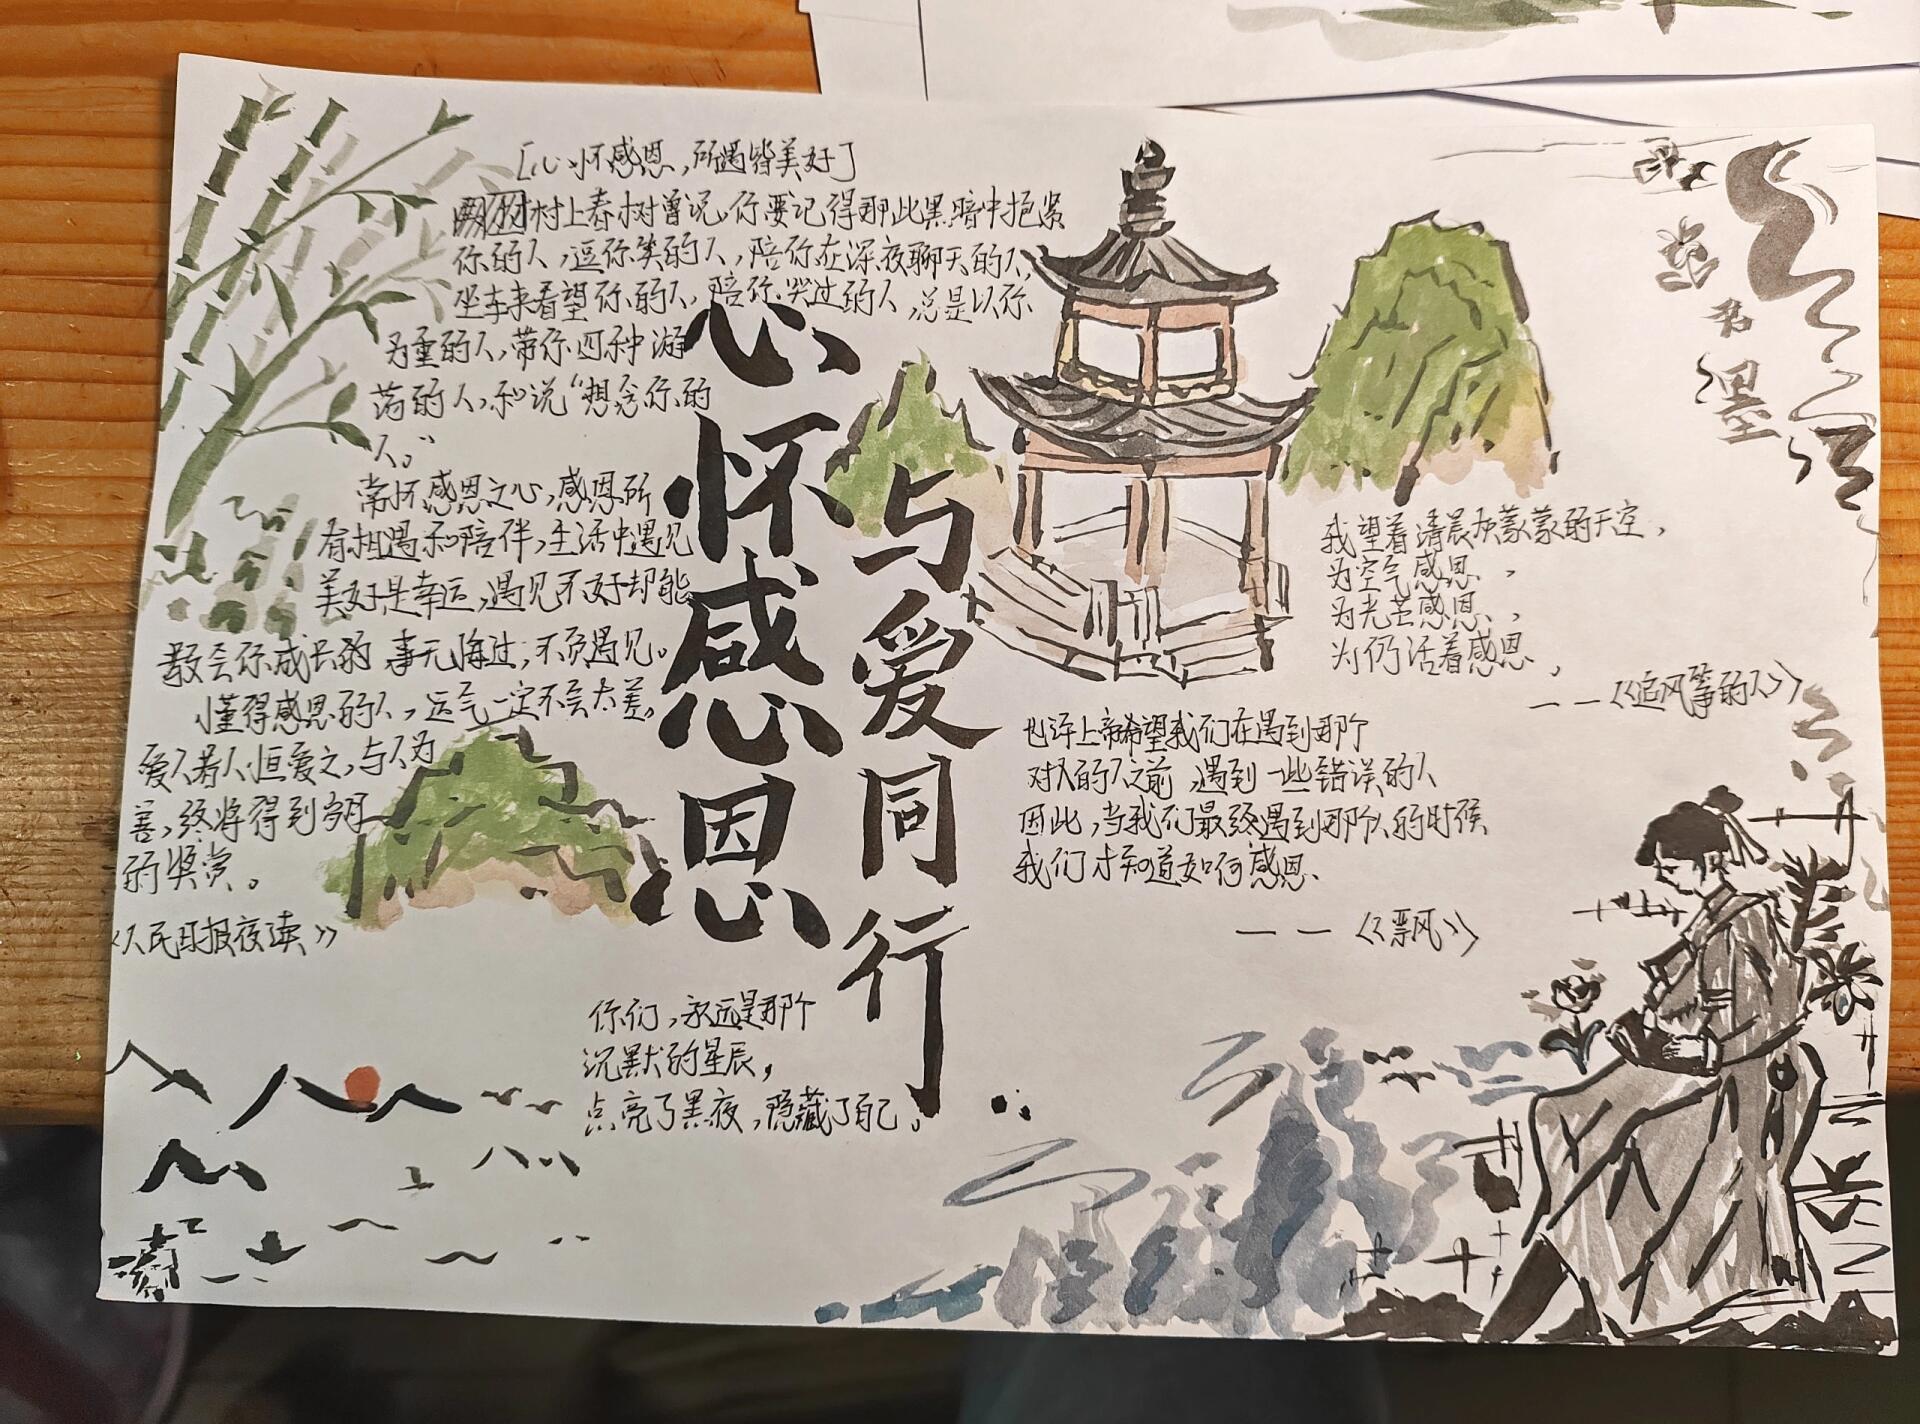 [心怀感恩,所遇皆美好]
村上春树曾说,你要记得那些黑暗中抱紧
你的人,逗你笑的人,陪你在深夜聊天的人,
坐车来看望你的人,陪你哭过的人,总是以你
为重的人,带你四种游
荡的人,和说“想念你的
人。”
常怀感恩之心,感恩所
有相遇和陪伴,生活中遇见
美好是幸运,遇见不好却能
教会你成长的事无悔过,不负遇见。
懂得感恩的人,运气一定不会太差。
爱人者人恒爱之,与人为
善,终将得到岁月
的奖赏。
《人民日报夜读》
心怀感恩
与爱同行
你们,永远是那个
沉默的星辰,
点亮了黑夜,隐藏了自己。
我望着清晨灰蒙蒙的天空,
为空气感恩,
为光芒感恩,
为仍活着感恩,
——《追风筝的人》
也许上帝希望我们在遇到那个
对的人之前,遇到一些错误的人
因此,当我们最终遇到那个人的时候
我们才知道如何感恩、
——《飘风》
墨